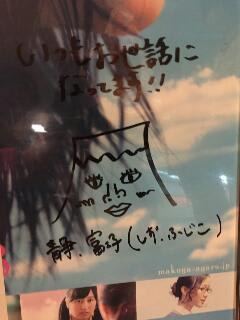 いつもお世話に
なってます!!
静 富子(しか.ふじこ)
makuga-agaru.jp